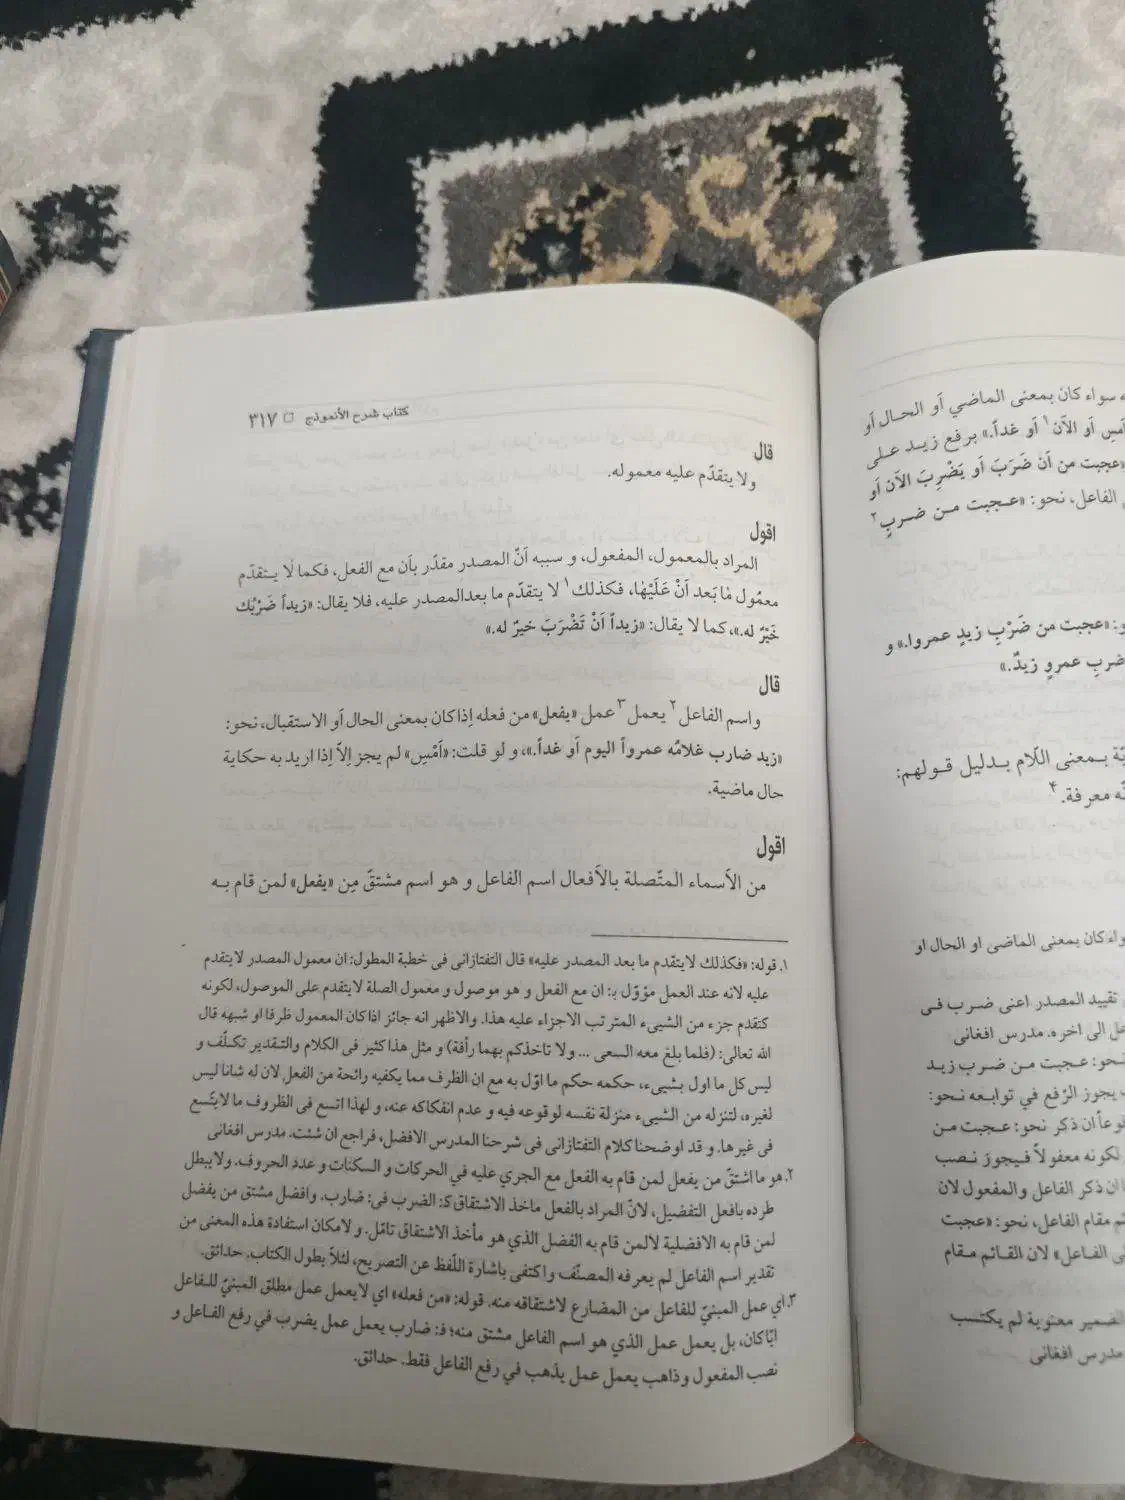 ه سواء كان بمعنى الماضي أو الحال أو
أمسِ أو الآن١ أو غداً.» برفع زيد على
«عجبت من أن ضَرَبَ أو يَضْرِبَ الآن أو
الفاعل، نحو: «عجبت من ضربٍ٢
و: «عجبت من ضَرْبِ زيدٍ عمروا.» و
ضربِ عمروٍ زيدٌ.»
يّة بمعنى اللّام بدليل قولهم:
ه معرفة.٤
واء كان بمعنى الماضى او الحال او
تقييد المصدر اعنى ضرب فى
ل الى اخره. مدرس افغانى
نحو: عجبت من ضرب زيد
يجوز الرّفع في توابعه نحو:
وعاً ان ذكر نحو: عجبت من
لكونه معفولاً فيجوز نصب
ان ذكر الفاعل والمفعول لان
م مقام الفاعل، نحو: «عجبت
ى الفاعل» لان القائم مقام
الضمير معنوية لم يكتسب
مدرس افغانى
كتاب شرح الأنموذج □ ٣١٧
قال
ولا يتقدّم عليه معموله.
اقول
المراد بالمعمول، المفعول، و سببه اَنّ المصدر مقدّر بأن مع الفعل، فكما لا يتقدّم
معمُول مٰا بَعد اَنْ عَلَيْهٰا، فكذلك١ لا يتقدّم ما بعدالمصدر عليه، فلا يقال: «زيداً ضَرْبُك
خَيْرٌ له.»، كما لا يقال: «زيداً اَنْ تَضْرَبَ خيرٌ له.»
قال
و اسم الفاعل٢ يعمل٣ عمل «يفعل» من فعله إذا كان بمعنى الحال أو الاستقبال، نحو:
«زيد ضارب غلامُه عمرواً اليوم أو غداً.»، و لو قلت: «أمْسِ» لم يجز اِلاّ إذا اريد به حكاية
حال ماضية.
اقول
من الأسماء المتّصلة بالأفعال اسم الفاعل و هو اسم مشتقّ مِن «يفعل» لمن قام به
١. قوله: «فكذلك لايتقدم ما بعد المصدر عليه» قال التفتازانى فى خطبة المطول: ان معمول المصدر لايتقدم
عليه لانه عند العمل مؤوّل بـ: ان مع الفعل و هو موصول و معمول الصلة لايتقدم على الموصول، لكونه
كتقدم جزء من الشيىء المترتب الاجزاء عليه هذا. والاظهر انه جائز اذاكان المعمول ظرفا او شبهه قال
الله تعالى: (فلما بلغ معه السعى ... ولا تاخذكم بهما رأفة) و مثل هذا كثير فى الكلام والتقدير تكلّف و
ليس كل ما اول بشيىء، حكمه حكم ما اوّل به مع ان الظرف مما يكفيه رائحة من الفعل لان له شانا ليس
لغيره، لتنزله من الشيىء منزلة نفسه لوقوعه فيه و عدم انفكاكه عنه، و لهذا اتسع فى الظروف ما لايتّسع
فى غيرها. و قد اوضحنا كلام التفتازانى فى شرحنا المدرس الافضل، فراجع ان شئت. مدرس افغانى
٢. هو ما اشتقّ من يفعل لمن قام به الفعل مع الجري عليه في الحركات و السكنات و عدد الحروف. ولايبطل
طرده بافعل التفضيل، لانّ المراد بالفعل ماخذ الاشتقاق كـ: الضرب فى: ضارب. وافضل مشتق من يفضل
لمن قام به الافضلية لالمن قام به الفضل الذي هو مأخذ الاشتقاق تامّل. و لامكان استفادة هذه المعنى من
تقدير اسم الفاعل لم يعرفه المصنّف واكتفى باشارة اللّفظ عن التصريح، لئلاّ يطول الكتاب. حدائق.
٣. اي عمل المبنيّ للفاعل من المضارع لاشتقاقه منه. قوله: «من فعله» اي لايعمل عمل مطلق المبنيّ للفاعل
ايّا كان، بل يعمل عمل الذي هو اسم الفاعل مشتق منه؛ فـ: ضارب يعمل عمل يضرب في رفع الفاعل و
نصب المفعول وذاهب يعمل عمل يذهب في رفع الفاعل فقط. حدائق.